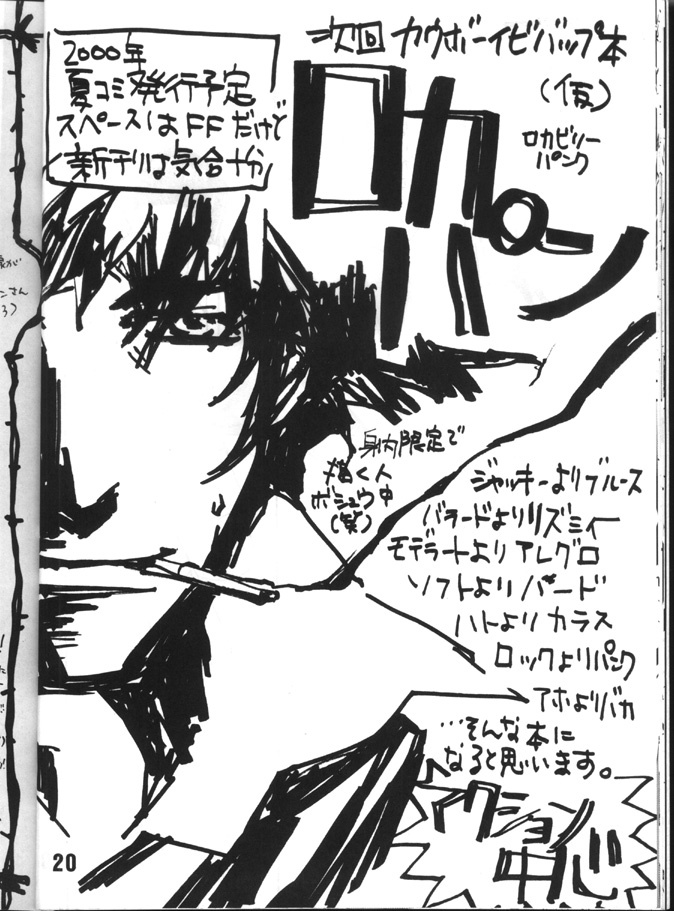 次回 カウボーイビバップ本
(仮)
ロカビリー
パンク
ロカ
パーン
2000年
夏コミ発行予定
スペースはFFだけど
新刊は気合十分
身内限定で
描く人
ボシュウ中
(笑)
ジャッキーよりブルース
バラードよりリズミィー
モデラートよりアレグロ
ソフトよりハード
ハトよりカラス
ロックよりパンク
アホよりバカ
…そんな本に
なると思います。
アクション
中心
20